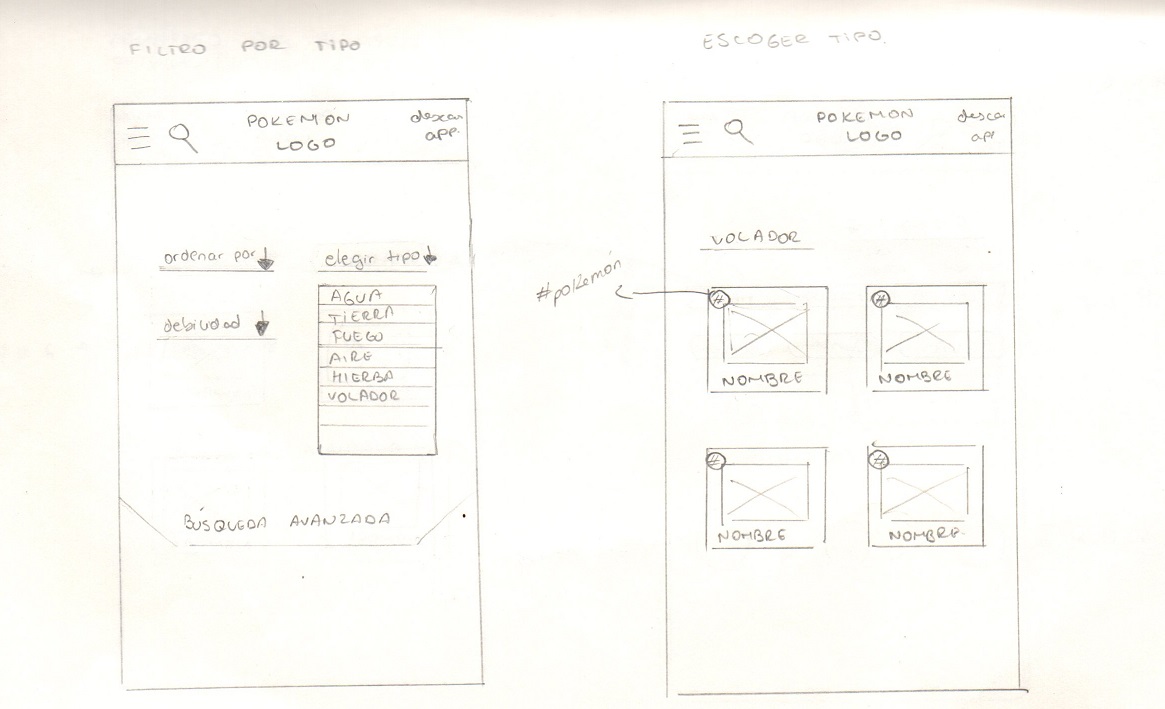 FILTRO POR TIPO
POKEMON
LOGO
descar
app.
ordenar por
elegir tipo
debilidad
AGUA
TIERRA
FUEGO
AIRE
HIERBA
VOLADOR
BÚSQUEDA AVANZADA
ESCOGER TIPO.
POKEMON
LOGO
desca
ap
VOLADOR
#pokemón
#
NOMBRE
#
NOMBRE
#
NOMBRE
#
NOMBRE